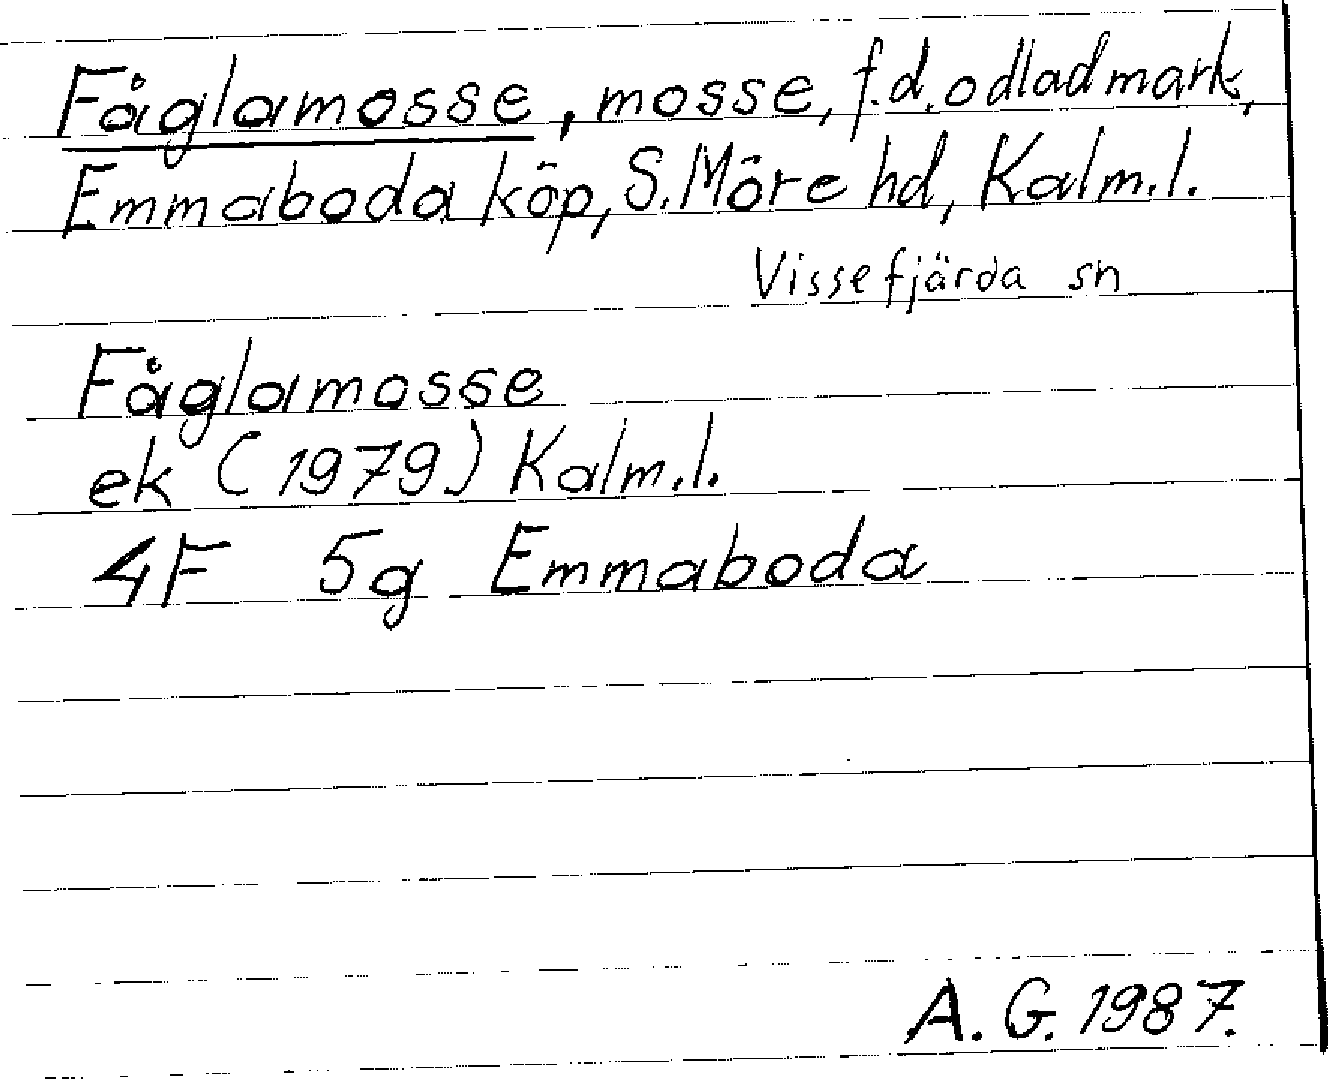 Fåglamosse, mosse, f.d. odlad mark,
Emmaboda köp, S. Möre hd, Kalm.l.
Vissefjärda sn
Fåglamosse
ek (1979) Kalm.l.
4F 5g Emmaboda
A. G. 1987.